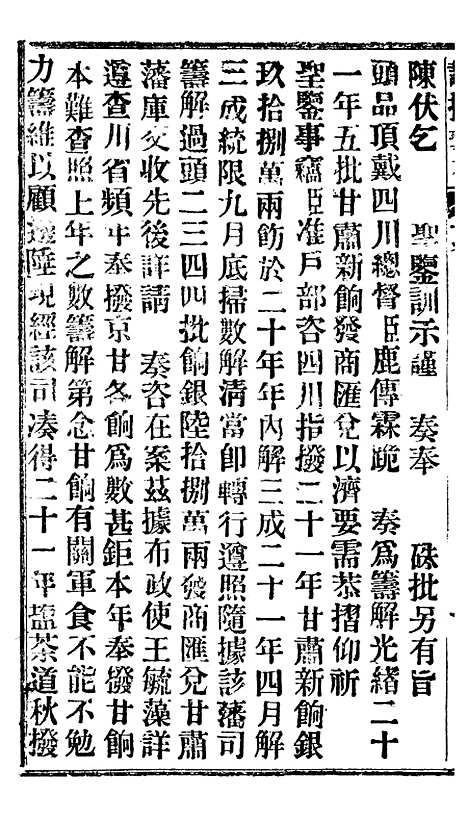 陳伏乞　　聖鑒訓示謹　　奏奉　　硃批另有旨
頭品頂戴四川總督臣鹿傳霖跪　奏爲籌解光緒二十
一年五批甘肅新餉發商匯兌以濟要需恭摺仰祈
聖鑒事竊臣准戶部咨四川指撥二十一年甘肅新餉銀
玖拾捌萬兩飭於二十年年內解三成二十一年四月解
三成統限九月底掃數解清當卽轉行遵照隨據該藩司
籌解過頭二三四四批餉銀陸拾捌萬兩發商匯兌甘肅
藩庫交收先後詳請　奏咨在案茲據布政使王毓藻詳
遵查川省頻年奉撥京甘各餉爲數甚鉅本年奉撥甘餉
本難查照上年之數籌解第念甘餉有關軍食不能不勉
力籌維以顧邊陲現經該司湊得二十一年鹽茶道秋撥